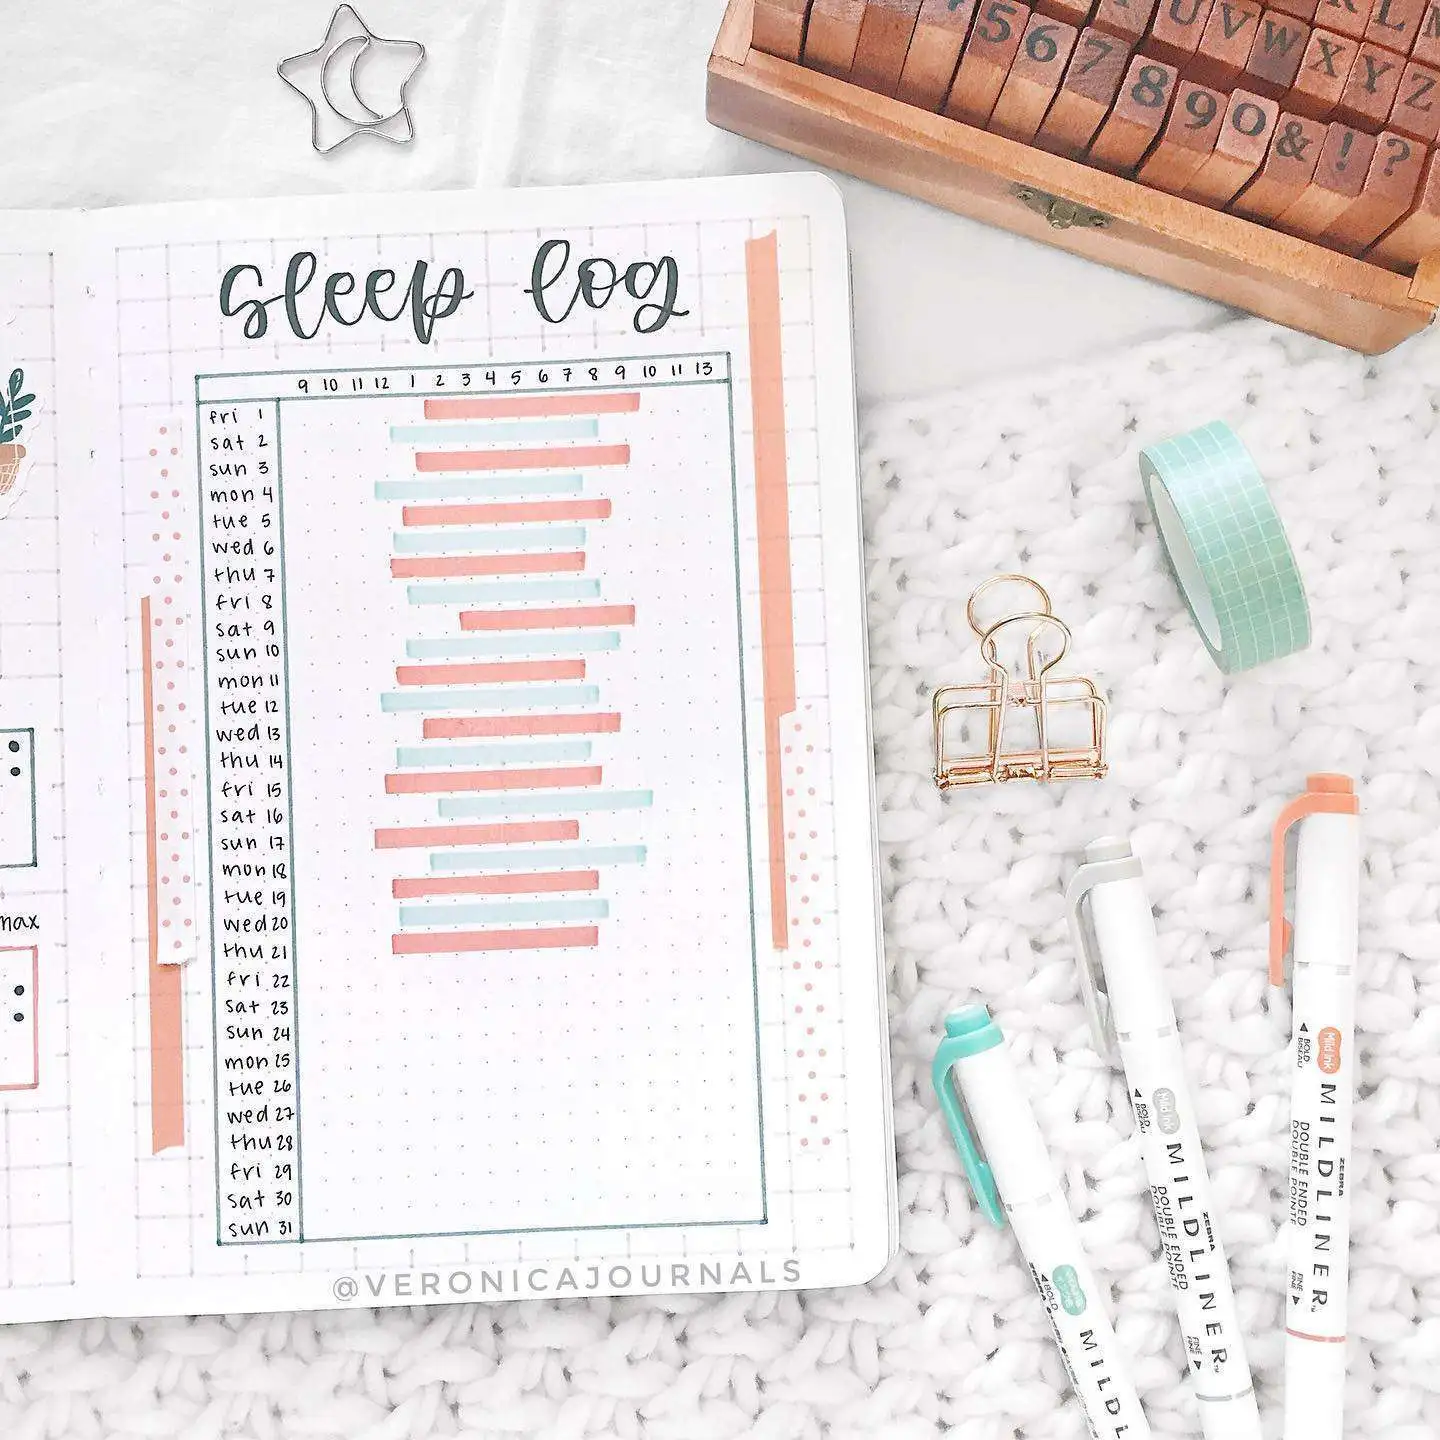 5 U V W R L
6 7 X Y Z
8 9 0 & ! ?
sleep log
9 10 11 12 1 2 3 4 5 6 7 8 9 10 11 13
fri 1
sat 2
sun 3
mon 4
tue 5
wed 6
thu 7
fri 8
sat 9
sun 10
mon 11
tue 12
wed 13
thu 14
fri 15
sat 16
sun 17
mon 18
tue 19
wed 20
thu 21
fri 22
sat 23
sun 24
mon 25
tue 26
wed 27
thu 28
fri 29
sat 30
sun 31
max
@VERONICAJOURNALS
BOLD
MILDL
Mild Ink
BOLD
BISEAU
ZEBRA
MILDLINER
DOUBLE ENDED
DOUBLE POINTE
FINE
FINE
Mild Ink
BOLD
BISEAU
ZEBRA
MILDLINER™
DOUBLE ENDED
DOUBLE POINTE
FINE
FINE